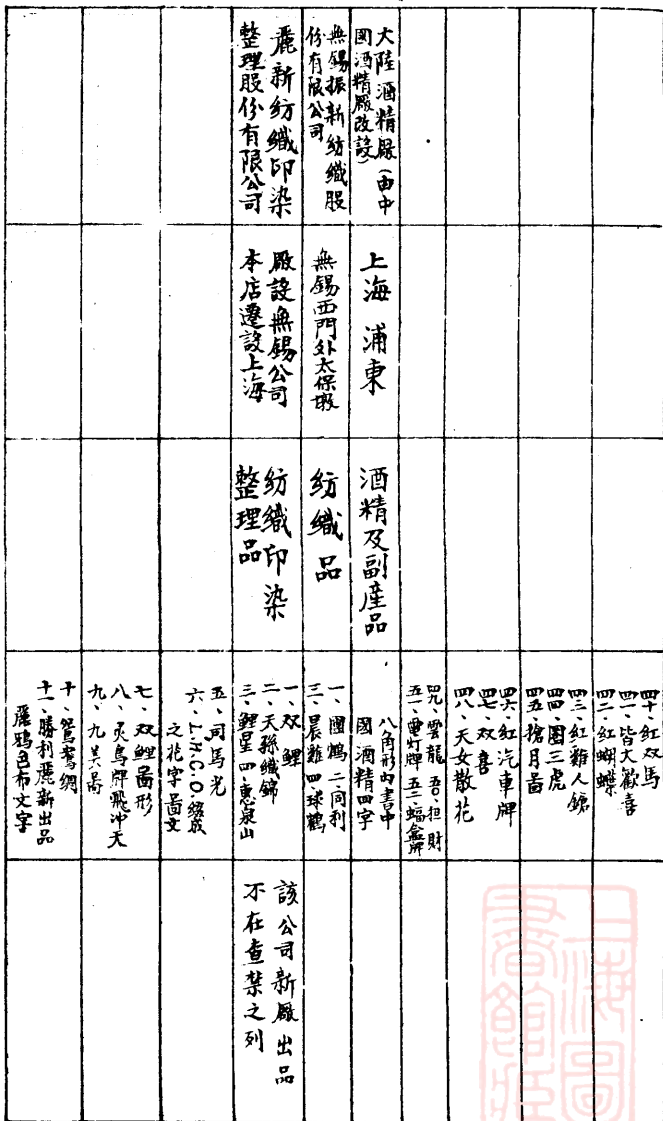 四十、紅双馬
四一、皆大歡喜
四二、紅蝴蝶
四三、紅雞人鎗
四四、團三虎
四五、搶月啚
四六、紅汽車牌
四七、双喜
四八、天女散花
四九、雲龍 五〇、担財
五一、電灯牌 五二、蝠盒牌
大陸酒精厰(由中
國酒精厰改設)
上海浦東
酒精及副產品
八角形內書中
國酒精四字
無錫振新紡織股
份有限公司
無錫西門外太保墩
紡織品
一、團鶴 二、同利
三、晨雞 四、球鶴
麗新紡織印染
整理股份有限公司
厰設無錫公司
本店遷設上海
紡織印染
整理品
一、双鯉
二、天孫織錦
三、鯉星 四、惠泉山
該公司新厰出品
不在查禁之列
五、司馬光
六、L.H.C.O.綴成
之花字啚文
七、双鯉啚形
八、灵鳥牌飛冲天
九、九美啚
十、鴛鴦綢
十一、勝利麗新出品
麗鴉色布文字
上海圖
書館